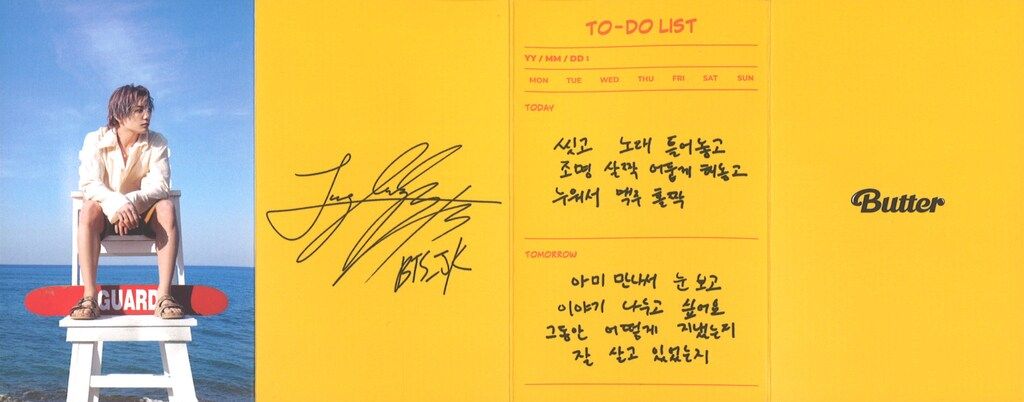 GUARD
Jung
BTS JK
TO-DO LIST
YY / MM / DD :
MON TUE WED THU FRI SAT SUN
TODAY
씻고 노래 틀어놓고
조명 살짝 어둡게 해놓고
누워서 맥주 홀짝
TOMORROW
아미 만나서 눈 보고
이야기 나누고 싶어요
그동안 어떻게 지냈는지
잘 살고 있었는지
Butter